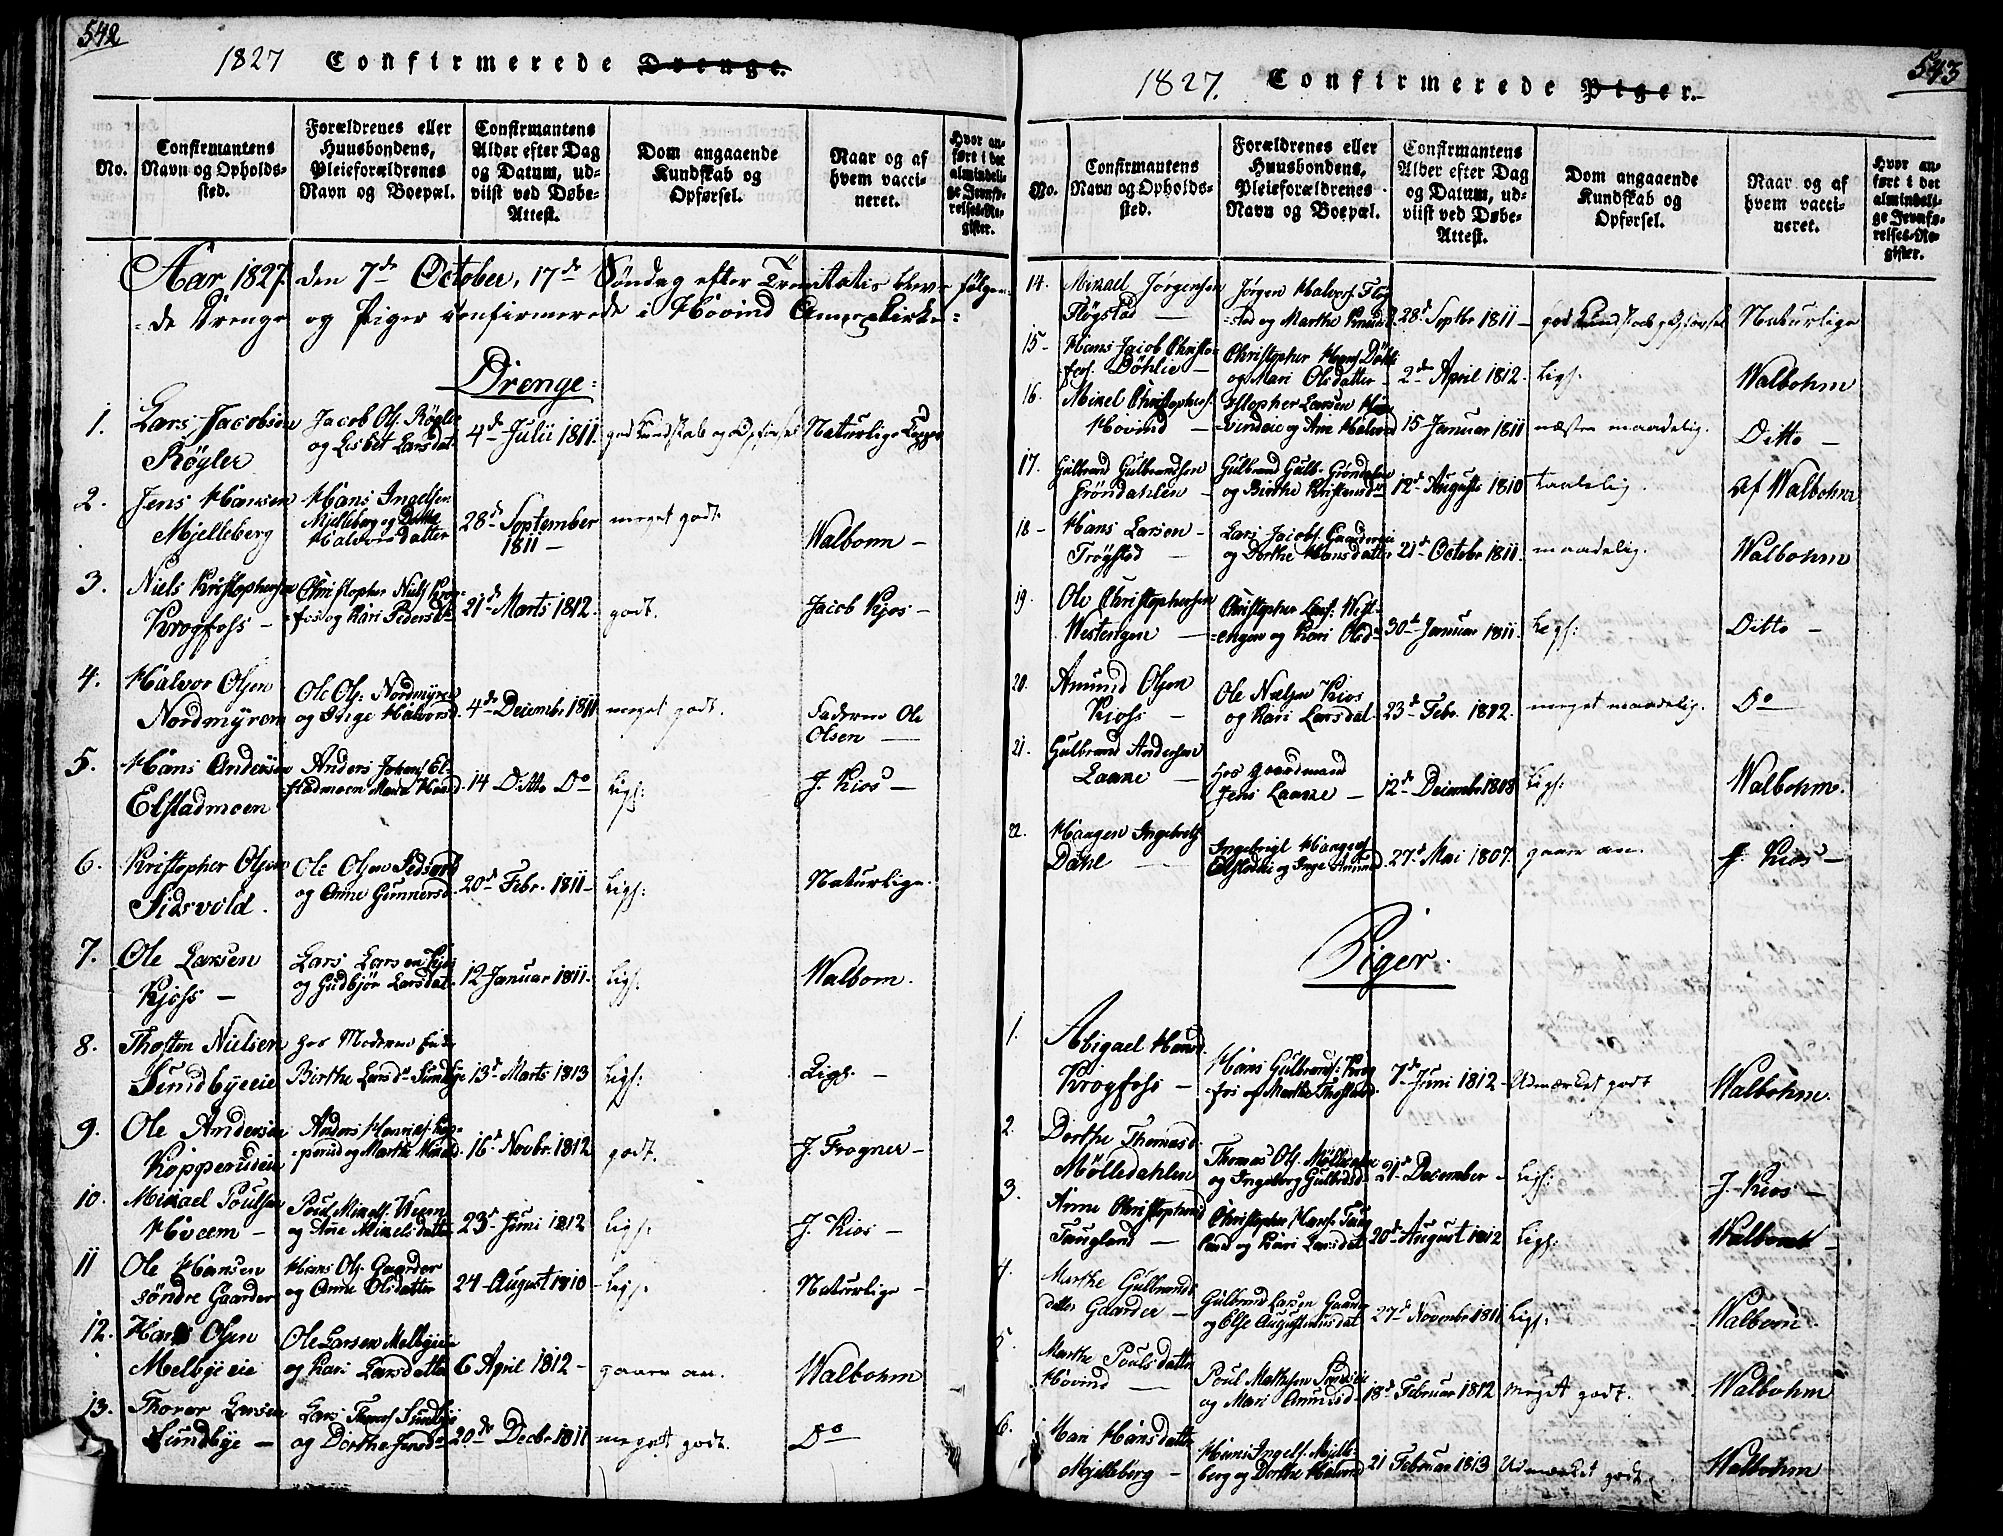 542
1827 Confirmerede Drenge.
No.
Confirmantens
Navn og Opholds-
sted.
Forældrenes eller
Huusbondens,
Pleieforældrenes
Navn og Boepæl.
Confirmantens
Alder efter Dag
og Datum, ud-
viist ved Døbe-
Attest.
Dom angaaende
Kundskab og
Opførsel.
Naar og af
hvem vacci-
neret.
Hvor an-
ført i det
almindeli-
ge Jevnfø-
relses-Re-
gister.
Aar 1827 den 7de October, 17de Søndag efter Trinitatis blev følgen-
-de Drenge og Piger confirmerede i Hovind Annexkirke:
Drenge:
1.
Lars Jacobsen
Røgler
Jacob Ols. Røgler
og Lisbet Larsdat.
4de Julii 1811.
god Kundskab og Opførsel
Naturlige Kopper
2.
Jens Hansen
Mjelleberg
Hans Ingelsen
Mjelleberg og Dorthe
Halvorsdatter
28de September
1811 –
meget godt.
Walbom –
3.
Niels Kristophersen
Krogfoss –
Christopher Niels. Krog-
fos og Kari Pedersd.
21de Marts 1812.
godt.
Jacob Kjos –
4.
Halvor Olsen
Nordmyren
Ole Ols: Nordmyren
og Inge Halvorsd.
4de Decembr 1811
meget godt.
Faderen Ole
Olsen –
5.
Hans Andersen
Elstadmoen
Anders Johans. El-
stadmoen Maria Hansd.
14 Ditto Do
Ligs:
J. Kios –
6.
Kristopher Olsen
Sidsvold.
Ole Olsen Sidsvold
og Anne Gunnersd.
20de Febr. 1811 –
Ligs:
Naturlige.
7.
Ole Larsen
Kjoss –
Lars Larsen Kjos
og Gudbjør Larsdat.
12 Januar 1811.
Ligs:
Walbom.
8.
Thosten Nielsen
Sundbyeeie
hos Moderen Enke
Birthe Larsd. Sundbye
13de Marts 1813
Ligs:
Ligs. –
9.
Ole Andersen
Kopperudeie
Anders Henriks. Kop-
perud og Marthe Nilsd.
16de Novbr. 1812
godt.
J. Frogner –
10.
Mikael Poulsen
Hoveem –
Poul Mikels. Weem
og Ane Mikelsdatter
23de Juni 1812
Ligs:
J. Kios –
11
Ole Hansen
søndre Gaarder
Hans Ols. Gaarder
og Anne Olsdatter
24 August 1810 –
Ligs.
Naturlige –
12.
Hans Olsen
Melbyeeie
Ole Larsen Melbyeeie
og Kari Larsdatter
6 April 1812 –
gaaer an.
Walbohm
13.
Thorer Larsen
Sundbye –
Lars Thores. Sundbye
og Dorthe Jensd.
20de Decbr 1811
meget godt.
Do
543
1827. Confirmerede Piger.
No.
Confirmantens
Navn og Opholds-
sted.
Forældrenes eller
Huusbondens,
Pleieforældrenes
Navn og Boepæl.
Confirmantens
Alder efter Dag
og Datum, ud-
viist ved Døbe-
Attest.
Dom angaaende
Kundskab og
Opførsel.
Naar og af
hvem vacci-
neret.
Hvor an-
ført i det
almindeli-
ge Jevnfø-
relses-Re-
gister.
14.
Mikael Jørgensen
Fløgstad
Jørgen Halvors. Fløg-
stad og Marthe Knudsd.
28de Septbr 1811 –
god Kundskab og Opførsel
Naturlige
15 –
Hans Jacob Christo-
fers. Døhlie –
Christopher Hans. Døhli
og Mari Olsdatter –
2den April 1812.
Ligs.
Walbohm
16.
Mikel Christophers.
Hovind –
Christopher Larsen Ho-
vindeie og Ane Halvord.
15 Januar 1811
næsten maadelig.
Ditto –
17.
Gulbrand Gulbrandsen
Grøndahlen –
Gulbrand Gulb. Grøndalen
og Birthe Kristensd.
12de Auguste 1810
taalelig.
af Walbohm
18 –
Hans Larsen –
Trøgstad –
Lars Jacobs. Gaardereie
og Dorthe Hansdatter
21de Octobr 1811.
maadelig.
Walbohm
19.
Ole Christophersen
Westengen –
Christopher Lars. West-
engen og Kari Olsd.
30de Januar 1811.
Ligs:
Ditto –
20.
Amund Olsen
Kjoss –
Ole Nielsen Kios
og Kari Larsdat.
23de Febr. 1812.
meget maadelig.
Do
21.
Gulbrand Andersen
Laane –
Hos Gaardmand
Jens Laane –
12de Decembr 1808
Ligs:
Walbohm.
22.
Haagen Ingebrets.
Dahl –
27de Mai 1807.
gaaer an.
J. Kios –
Piger.
1.
Abigael Hansd.
Krogfoss –
Hans Gulbrands. Krog-
fos og Marthe Thostensd.
7de Juni 1812 –
Udmærket godt
Walbohm.
2.
Dorthe Thomasd.
Mølledahlen
Thomas Ols. Mølledalen
og Ingeborg Gulbrdsd.
21de December –
Ligs:
J. Kios –
3.
Anne Christophersd
Faugland –
Christopher Hans. Faug-
land og Kari Larsdat.
20de August 1812
Ligs:
Walbom –
4.
Marthe Gulbrands
datter Gaarder –
Gulbrand Larsen Gaarder
og Else Augustinusdat.
27de Novembr 1811
Ligs:
Walbom.
5.
Marthe Poulsdatter
Hovind –
Poul Mathisen
og Mari Amundsd.
18de Februar 1812
meget godt.
Walbohm
6.
Mari Hansdatter
Mjelleberg –
Hans Ingels. Mjelle-
berg og Dorthe Halvorsd
21 Februar 1813
Udmærket godt.
Walbohm